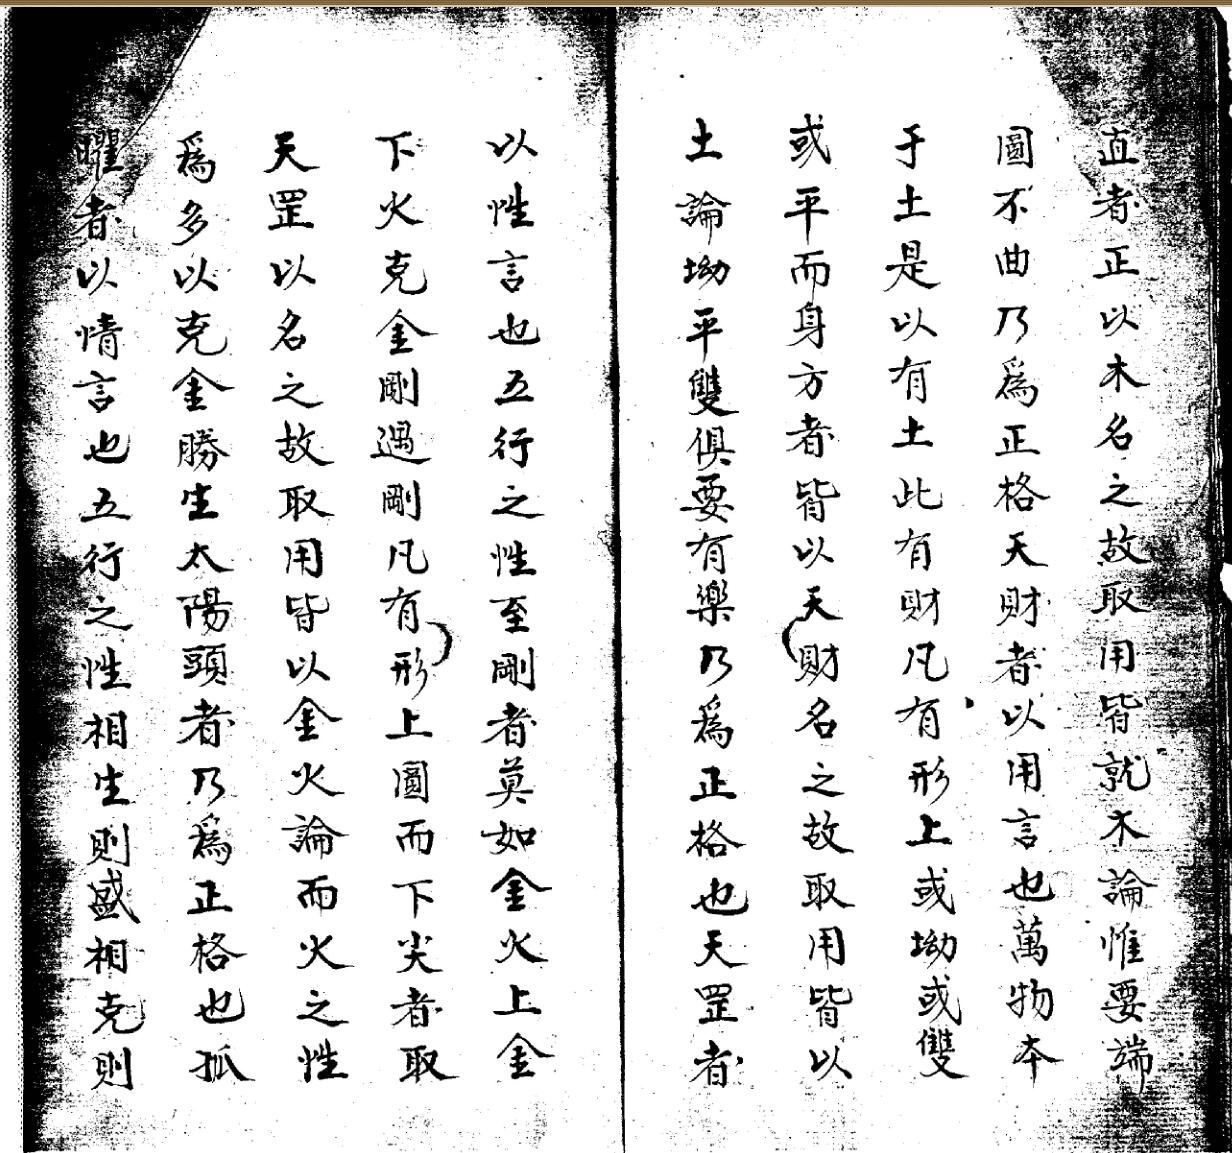 直者正以木名之故取用皆就木論惟要端
圓不曲乃爲正格天財者以用言也萬物本
于土是以有土此有財凡有形上或坳或雙
或平而身方者皆以天財名之故取用皆以
土論坳平雙俱要有樂乃爲正格也天罡者
以性言也五行之性至剛者莫如金火上金
下火克金剛遇剛凡有形上圓而下尖者取
天罡以名之故取用皆以金火論而火之性
爲多以克金勝生太陽頭者乃爲正格也孤
曜者以情言也五行之性相生則盛相克則